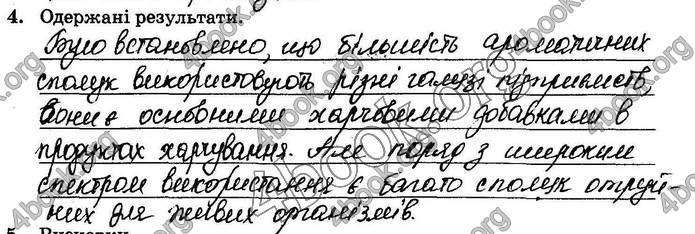 4. Одержані результати.
Було встановлено, що більшість ароматичних
сполук використовують різні галузі підприємств,
вони є основними харчовими добавками в
продуктах харчування. Але поряд з широким
спектром використання є багато сполук отруй-
них для живих організмів.
4book.org